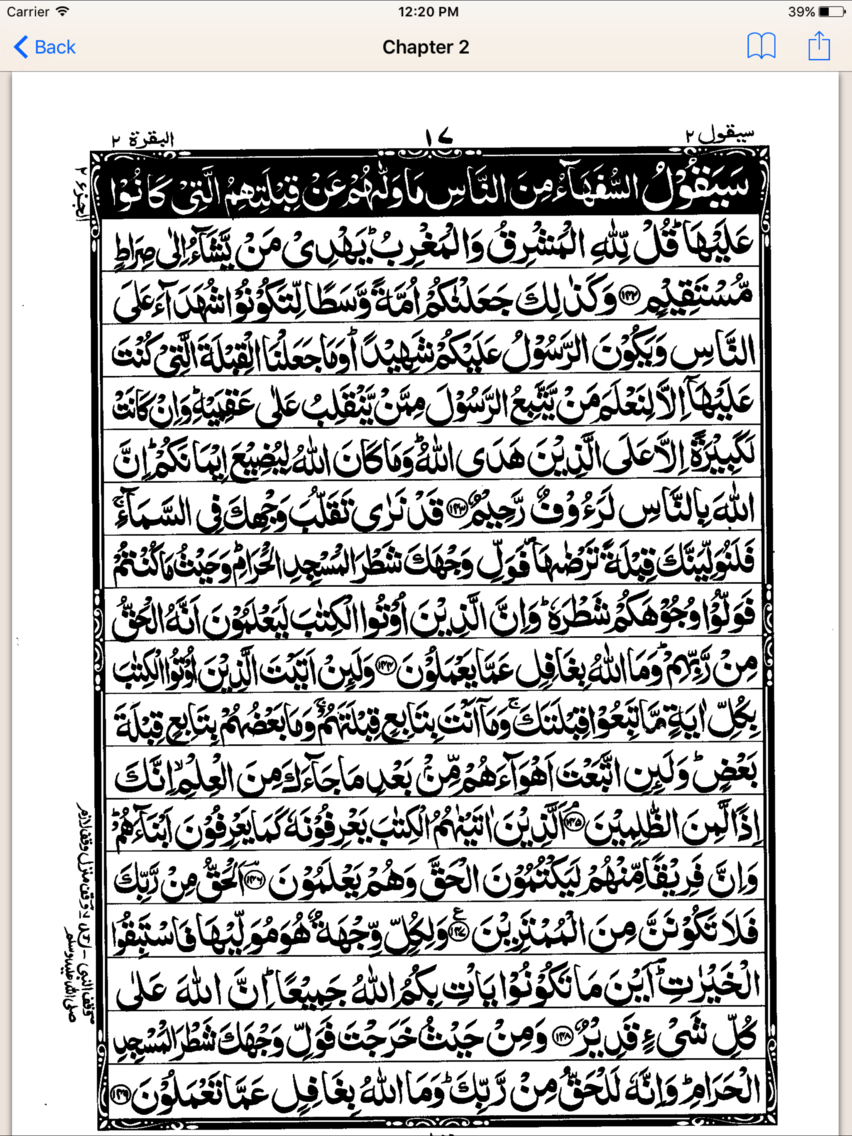 Carrier 12:20 PM 39%
Back Chapter 2
سيقول ٢ ١٧ البقرة ٢
سَيَقُوْلُ السُّفَهَآءُ مِنَ النَّاسِ مَا وَلّٰىهُمْ عَنْ قِبْلَتِهِمُ الَّتِیْ كَانُوْا
عَلَيْهَا ؕ قُلْ لِّلّٰهِ الْمَشْرِقُ وَالْمَغْرِبُ ؕ يَهْدِیْ مَنْ يَّشَآءُ اِلٰی صِرَاطٍ
مُّسْتَقِيْمٍ ۝۱۴۲ وَكَذٰلِكَ جَعَلْنٰكُمْ اُمَّةً وَّسَطًا لِّتَكُوْنُوْا شُهَدَآءَ عَلَی
النَّاسِ وَيَكُوْنَ الرَّسُوْلُ عَلَيْكُمْ شَهِيْدًا ؕ وَمَا جَعَلْنَا الْقِبْلَةَ الَّتِیْ كُنْتَ
عَلَيْهَآ اِلَّا لِنَعْلَمَ مَنْ يَّتَّبِعُ الرَّسُوْلَ مِمَّنْ يَّنْقَلِبُ عَلٰی عَقِبَيْهِ ؕ وَاِنْ كَانَتْ
لَكَبِيْرَةً اِلَّا عَلَی الَّذِيْنَ هَدَی اللّٰهُ ؕ وَمَا كَانَ اللّٰهُ لِيُضِيْعَ اِيْمَانَكُمْ ؕ اِنَّ
اللّٰهَ بِالنَّاسِ لَرَءُوْفٌ رَّحِيْمٌ ۝۱۴۳ قَدْ نَرٰی تَقَلُّبَ وَجْهِكَ فِی السَّمَآءِ ۚ
فَلَنُوَلِّيَنَّكَ قِبْلَةً تَرْضٰىهَا ۪ فَوَلِّ وَجْهَكَ شَطْرَ الْمَسْجِدِ الْحَرَامِ ؕ وَحَيْثُ مَا كُنْتُمْ
فَوَلُّوْا وُجُوْهَكُمْ شَطْرَهٗ ؕ وَاِنَّ الَّذِيْنَ اُوْتُوا الْكِتٰبَ لَيَعْلَمُوْنَ اَنَّهُ الْحَقُّ
مِنْ رَّبِّهِمْ ؕ وَمَا اللّٰهُ بِغَافِلٍ عَمَّا يَعْمَلُوْنَ ۝۱۴۴ وَلَئِنْ اَتَيْتَ الَّذِيْنَ اُوْتُوا الْكِتٰبَ
بِكُلِّ اٰيَةٍ مَّا تَبِعُوْا قِبْلَتَكَ ۚ وَمَآ اَنْتَ بِتَابِعٍ قِبْلَتَهُمْ ۚ وَمَا بَعْضُهُمْ بِتَابِعٍ قِبْلَةَ
بَعْضٍ ؕ وَلَئِنِ اتَّبَعْتَ اَهْوَآءَهُمْ مِّنْۢ بَعْدِ مَا جَآءَكَ مِنَ الْعِلْمِ ۙ اِنَّكَ
اِذًا لَّمِنَ الظّٰلِمِيْنَ ۝۱۴۵ اَلَّذِيْنَ اٰتَيْنٰهُمُ الْكِتٰبَ يَعْرِفُوْنَهٗ كَمَا يَعْرِفُوْنَ اَبْنَآءَهُمْ ؕ
وَاِنَّ فَرِيْقًا مِّنْهُمْ لَيَكْتُمُوْنَ الْحَقَّ وَهُمْ يَعْلَمُوْنَ ۝۱۴۶ اَلْحَقُّ مِنْ رَّبِّكَ
فَلَا تَكُوْنَنَّ مِنَ الْمُمْتَرِيْنَ ۝۱۴۷ وَلِكُلٍّ وِّجْهَةٌ هُوَ مُوَلِّيْهَا فَاسْتَبِقُوا
الْخَيْرٰتِ ؕ اَيْنَ مَا تَكُوْنُوْا يَاْتِ بِكُمُ اللّٰهُ جَمِيْعًا ؕ اِنَّ اللّٰهَ عَلٰی
كُلِّ شَیْءٍ قَدِيْرٌ ۝۱۴۸ وَمِنْ حَيْثُ خَرَجْتَ فَوَلِّ وَجْهَكَ شَطْرَ الْمَسْجِدِ
الْحَرَامِ ؕ وَاِنَّهٗ لَلْحَقُّ مِنْ رَّبِّكَ ؕ وَمَا اللّٰهُ بِغَافِلٍ عَمَّا تَعْمَلُوْنَ ۝۱۴۹
الجزء ٢
وقف منزل وقف لازم
وقف النبی
صلی اللہ علیہ وسلم